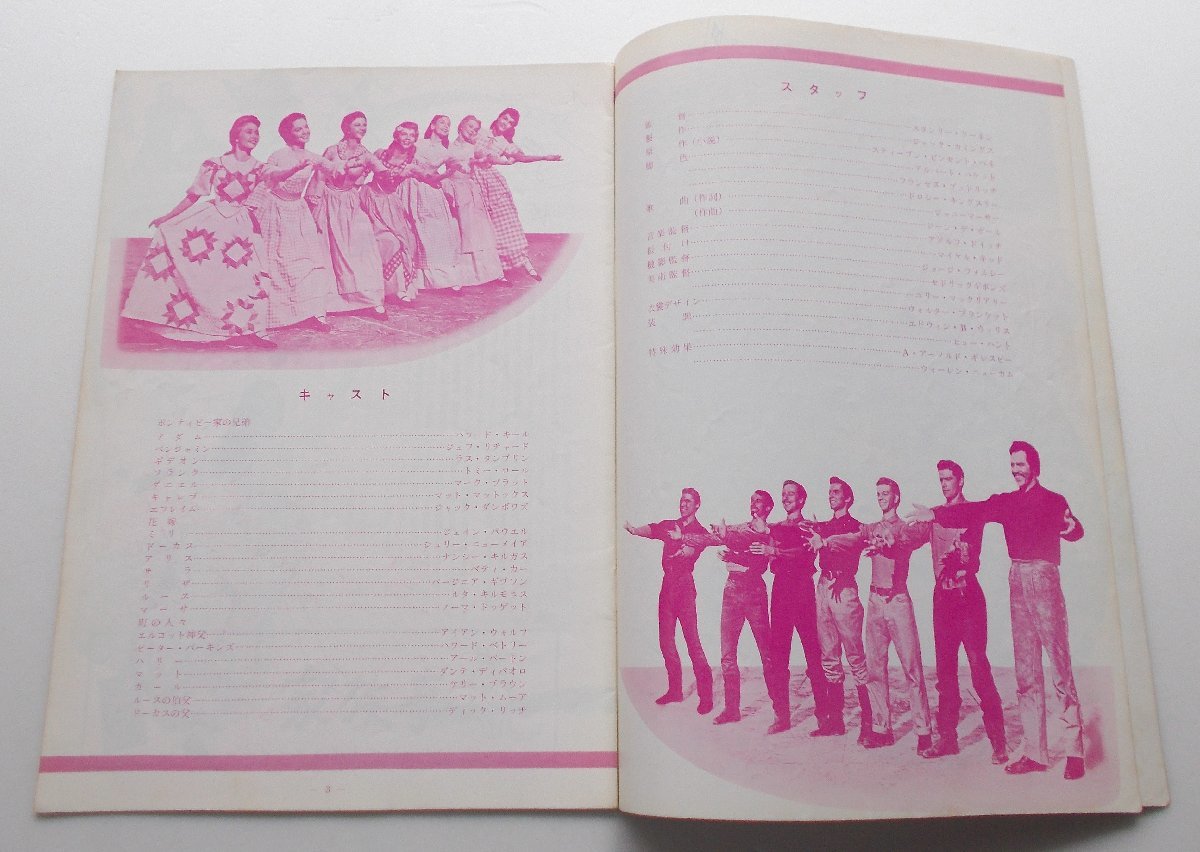 キャスト
ポンティピー家の兄弟
アダム……ハワード・キール
ベンジャミン……ジェフ・リチャード
ギデオン……ラス・タンブリン
フランク……トミー・ロール
ダニエル……マーク・プラット
キャレブ……マット・マットックス
エフレイム……ジャック・ダンボワズ
花嫁
ミリー……ジェイン・パウエル
ドーカス……ジュリー・ニューメイア
アリス……ナンシー・キルガス
サラ……ベティ・カー
リザ……バージニア・ギブソン
ルース……ルタ・キルモニス
マーサ……ノーマ・ドゲット
町の人々
エルコット神父……アイアン・ウォルフ
ピーター・パーキンズ……ハワード・ペトリー
ハリー……アール・バートン
マット……ダンテ・ディパオロ
カール……ケリー・ブラウン
ルースの伯父……マット・ムーア
ドーカスの父……ディック・リッチ
— 3 —
スタッフ
監督……スタンリー・ドーネン
製作……ジャック・カミングス
原作(小説)……スティーブン・ビンセント・ベネ
脚色……アルバート・ハケット
……フランセス・グッドリッチ
……ドロシー・キングスリー
歌曲(作詞)……ジョニー・マーサー
(作曲)……ジーン・デ・ポール
音楽監督……アドルフ・ドイッチ
振付け……マイケル・キッド
撮影監督……ジョージ・フォルシー
美術監督……セドリック・ギボンズ
……ユーリー・マックリアリー
衣裳デザイン……ウォルター・プランケット
装置……エドウィン・B・ウィリス
……ヒュー・ハント
特殊効果……A・アーノルド・ギレスピー
……ウォーレン・ニューカム